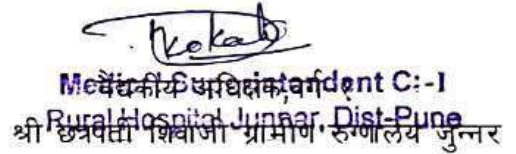 Medical Superintendent C:-I
वैद्यकीय अधिक्षक,वर्ग १
Rural Hospital Junnar, Dist-Pune
श्री छत्रपती शिवाजी ग्रामीण रुग्णालय जुन्नर